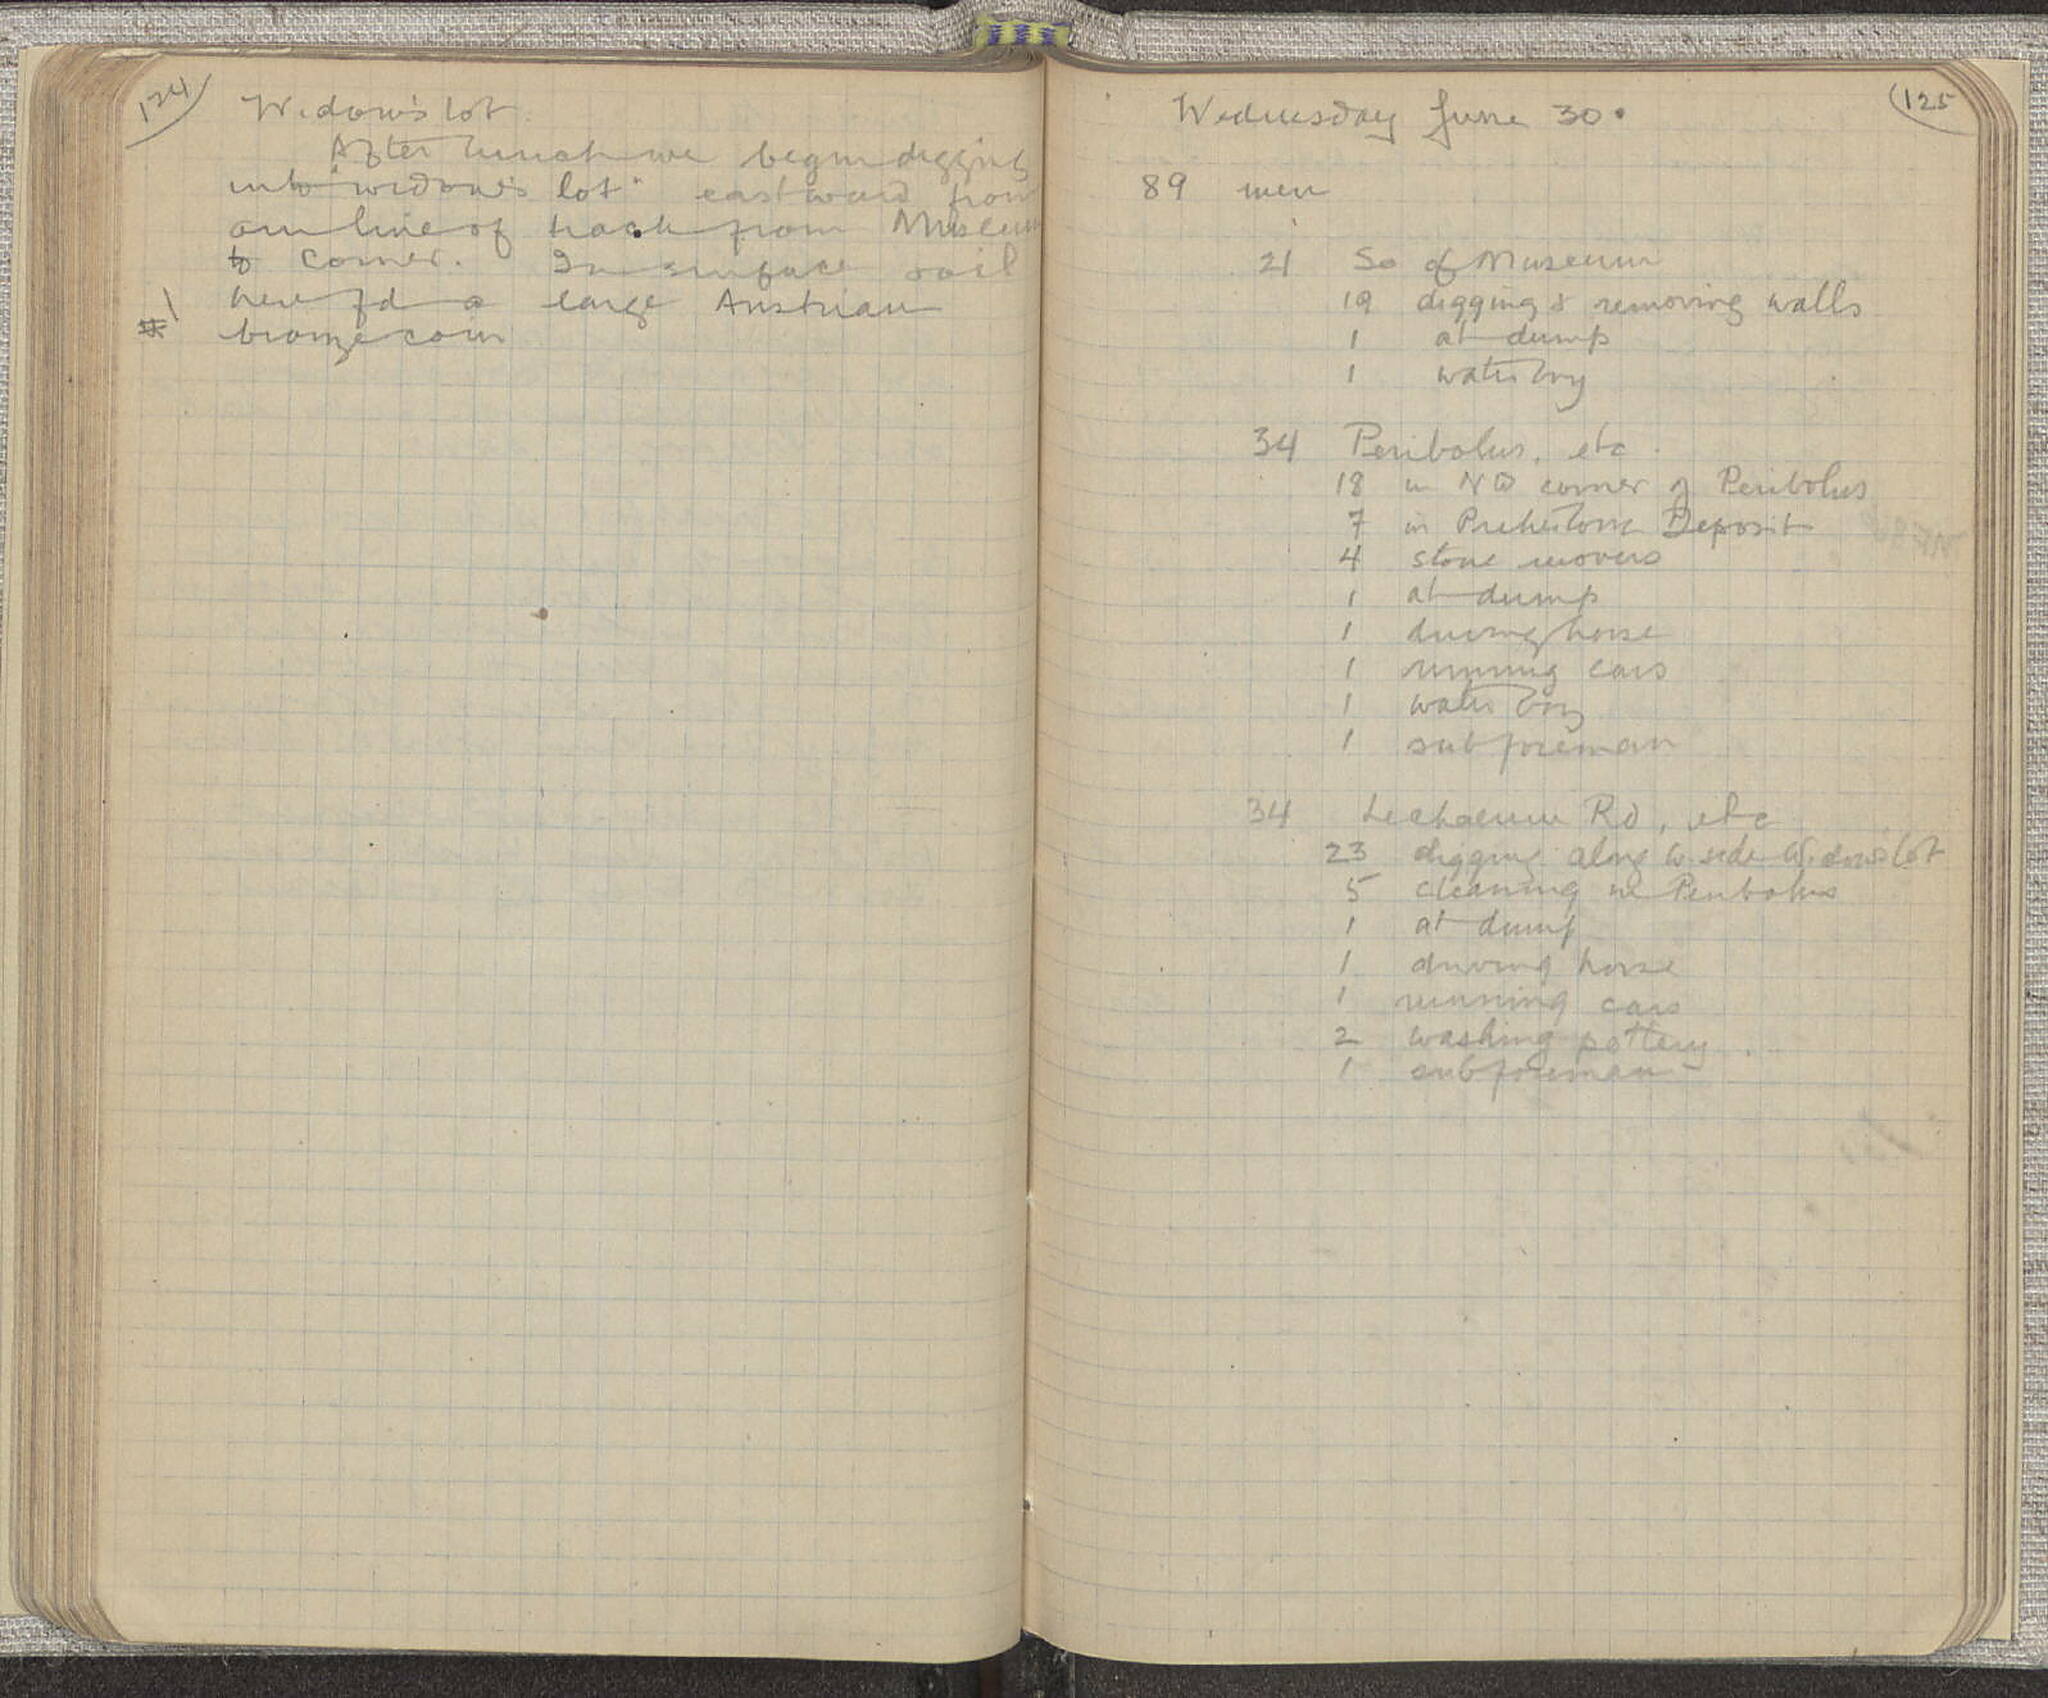 124
Widow's lot.
After lunch we begin digging
into "widow's lot" eastward from
our line of track from Museum
to corner. In surface soil
here fd a large Austrian
bronze coin
125
Wednesday June 30.
89 men
21 So of Museum
19 digging & removing walls
1 at dump
1 water boy
34 Peribolus, etc.
18 in NW corner of Peribolus
7 in Prehistoric Deposit
4 stone movers
1 at dump
1 driving horse
1 running cars
1 water boy
1 subforeman
34 Lechaeum Rd, etc
23 digging along W. side Widow's lot
5 cleaning in Peribolus
1 at dump
1 driving horse
1 running cars
2 washing pottery
1 subforeman